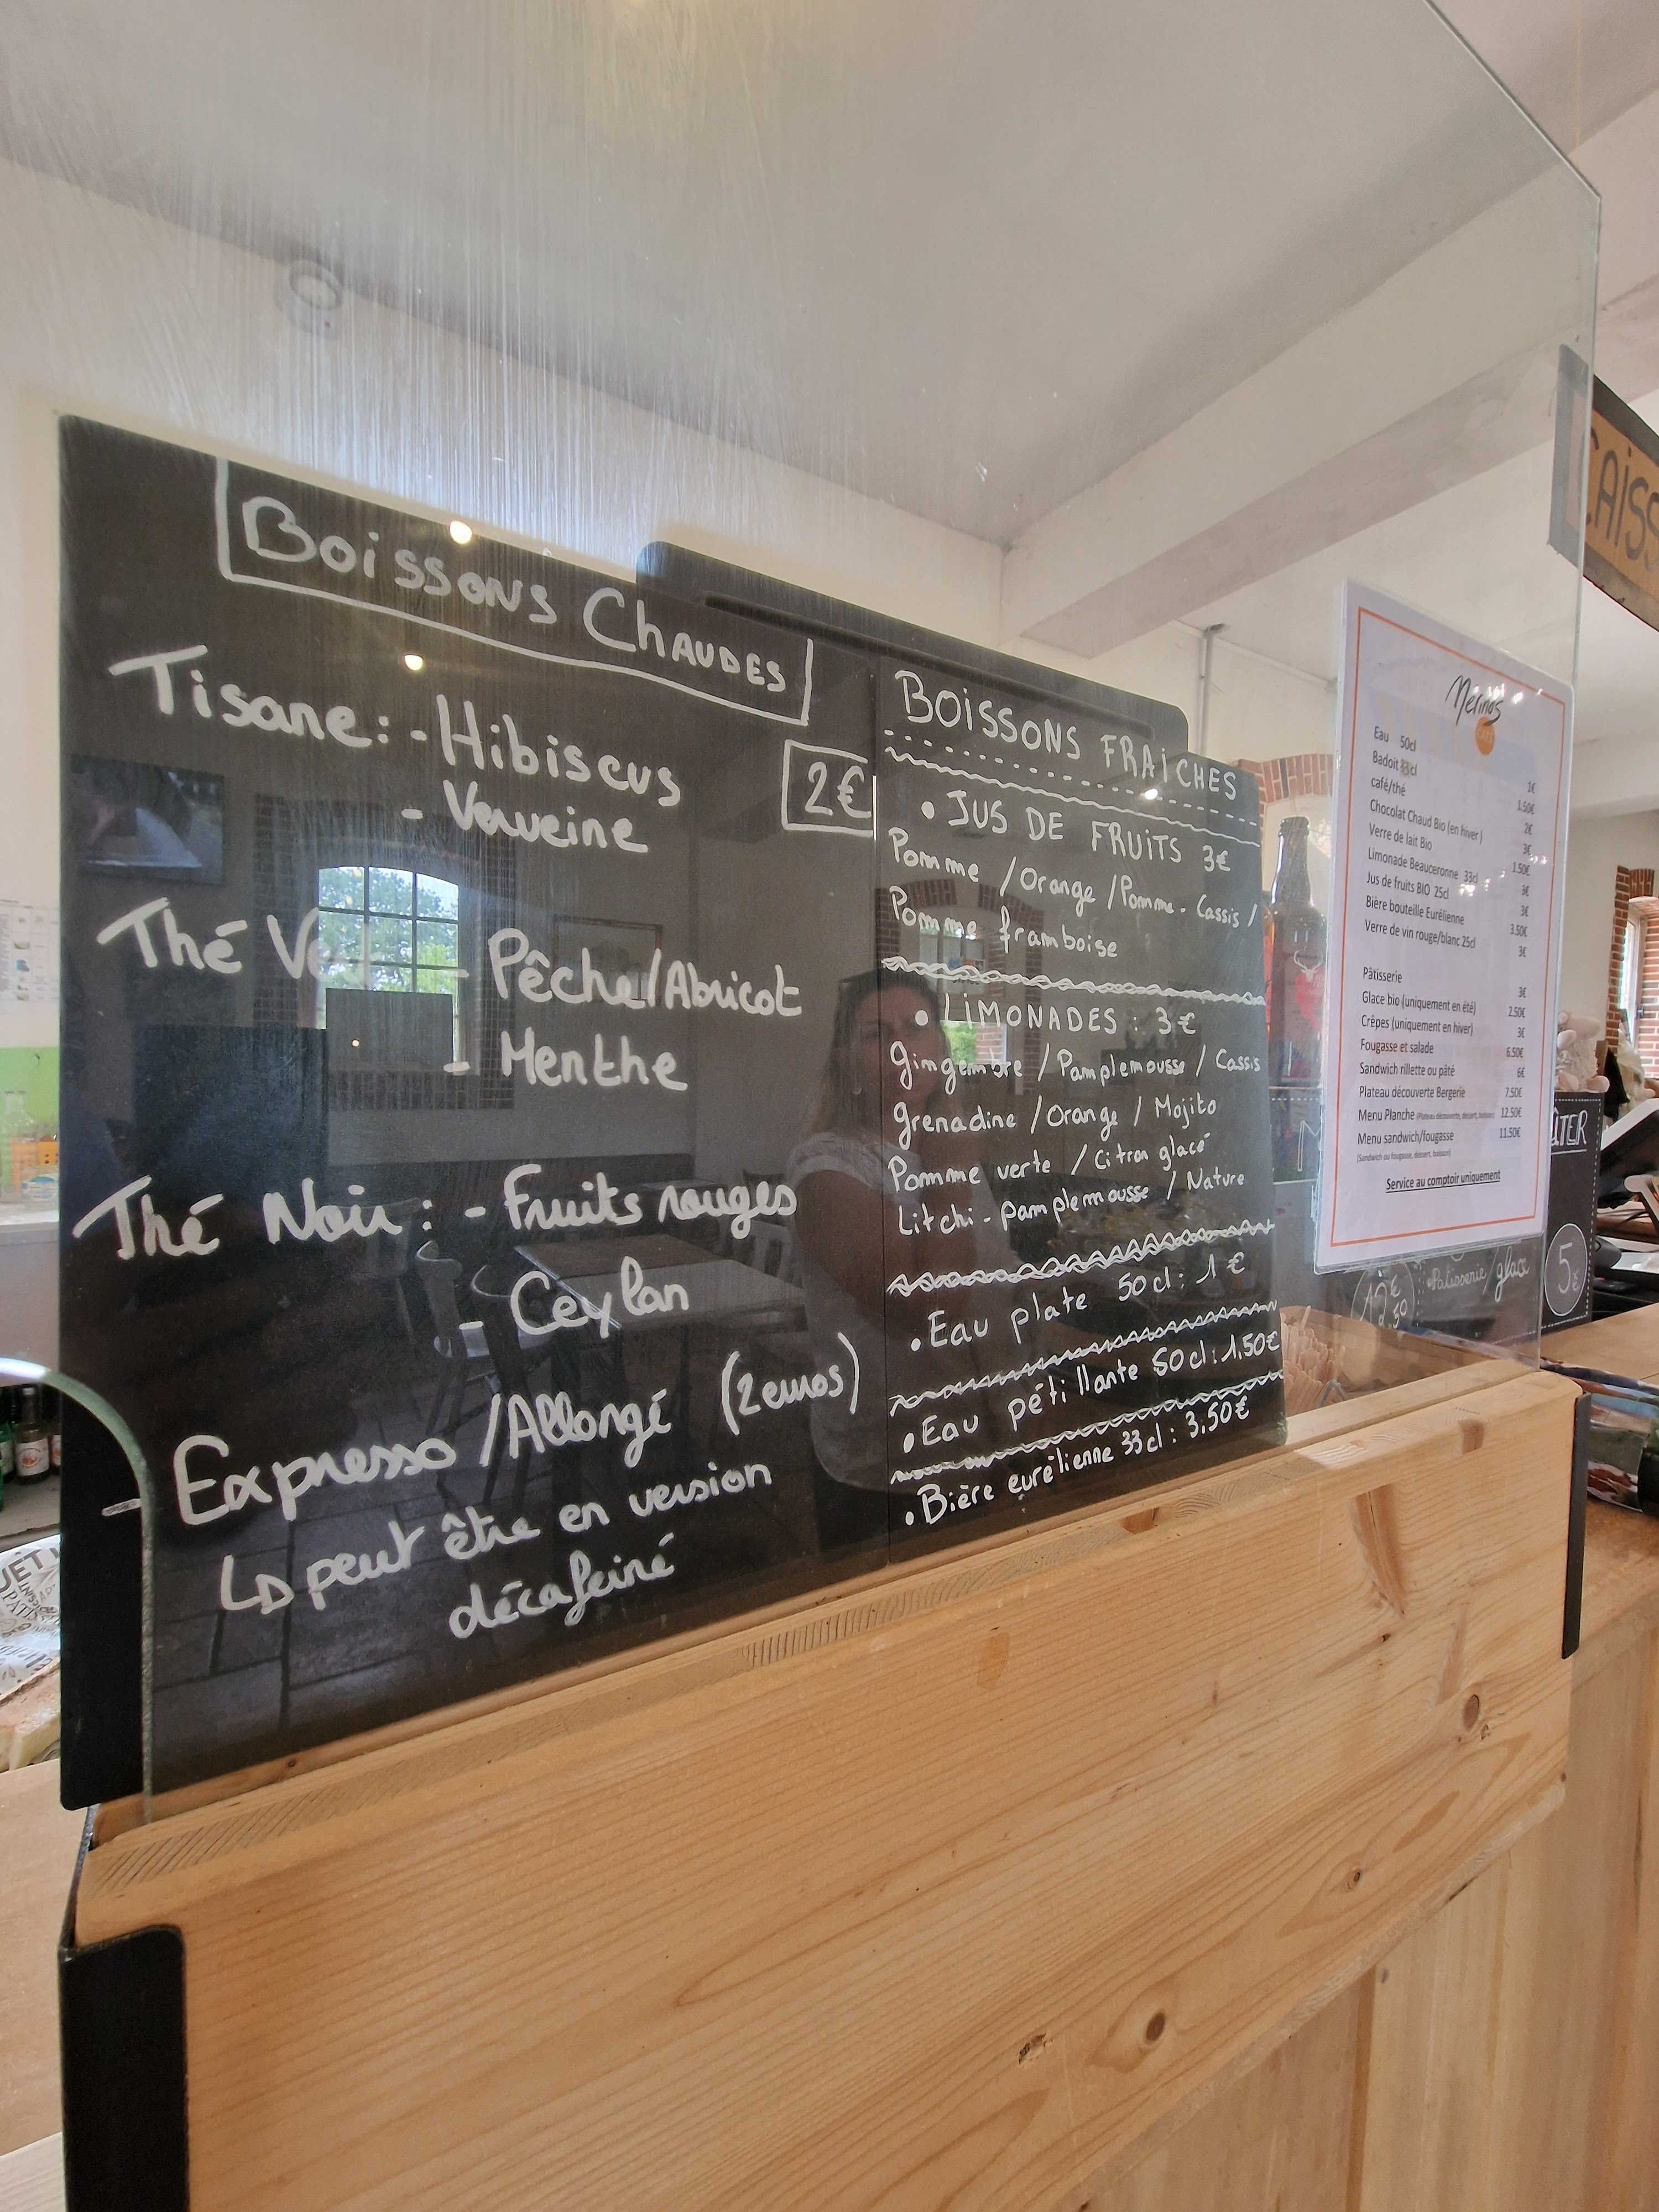 Boissons Chaudes
Tisane : - Hibiscus
2€
- Verveine
Thé Vert - Pêche/Abricot
- Menthe
Thé Noir : - Fruits rouges
- Ceylan
- Expresso /Allongé (2 euros)
peut être en version
décafeiné
BOISSONS FRAICHES
• JUS DE FRUITS 3€
Pomme / Orange / Pomme - Cassis /
Pomme framboise
• LIMONADES : 3€
Gingembre / Pamplemousse / Cassis
Grenadine / Orange / Mojito
Pomme verte / Citron glacé
Litchi - pamplemousse / Nature
• Eau plate 50cl : 1 €
• Eau pétillante 50cl : 1,50€
• Bière eurélienne 33cl : 3,50€
Merinos
Eau 50cl 1€
Badoit 33cl 1.50€
café/thé 2€
Chocolat Chaud Bio (en hiver ) 3€
Verre de lait Bio 1.50€
Limonade Beauceronne 33cl 3€
Jus de fruits BIO 25cl 3€
Bière bouteille Eurélienne 3.50€
Verre de vin rouge/blanc 25cl 3€
Pâtisserie 3€
Glace bio (uniquement en été) 2.50€
Crêpes (uniquement en hiver) 3€
Fougasse et salade 6.50€
Sandwich rillette ou pâté 6€
Plateau découverte Bergerie 7.50€
Menu Planche (Plateau découverte, dessert, boisson) 12.50€
Menu sandwich/fougasse 11.50€
(Sandwich ou fougasse, dessert, boisson)
Service au comptoir uniquement
CAISS
ÛTER
12€50
Patisserie/glace
5€